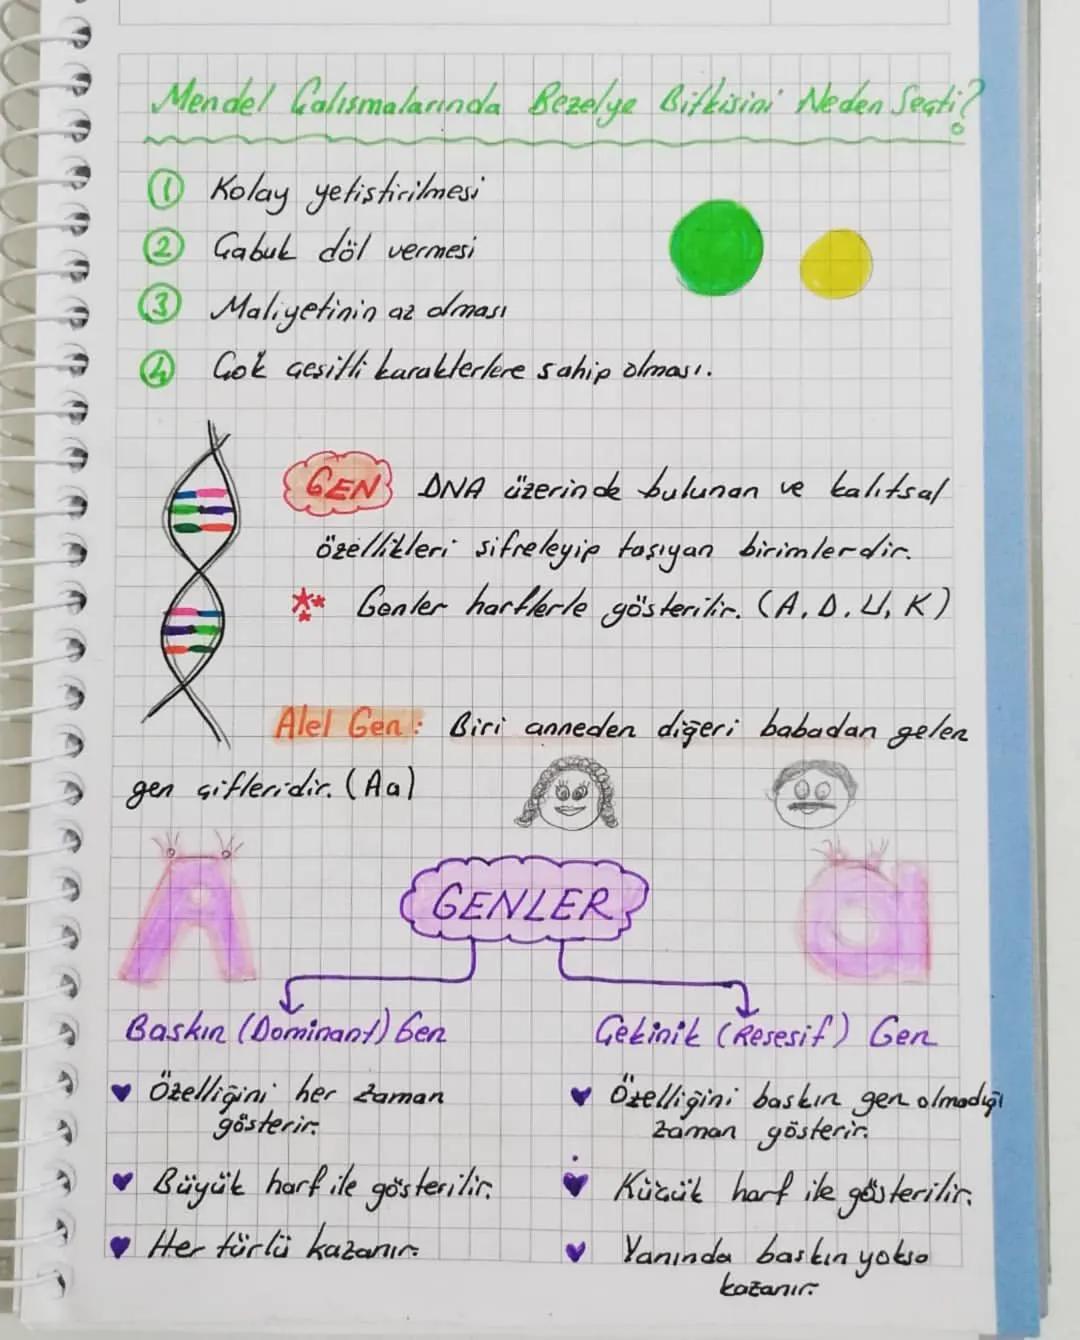 Mendel Çalışmalarında Bezelye Bitkisini Neden Seçti?
1 Kolay yetiştirilmesi
2 Çabuk döl vermesi
3 Maliyetinin az olması
4 Çok çeşitli karakterlere sahip olması.
GEN DNA üzerinde bulunan ve kalıtsal
özellikleri şifreleyip taşıyan birimlerdir.
Genler harflerle gösterilir. (A, D, U, K)
Alel Gen: Biri anneden diğeri babadan gelen
gen çiftleridir. (Aa)
A
a
GENLER
Baskın (Dominant) Gen
Çekinik (Resesif) Gen
Özelliğini her zaman
gösterir.
Büyük harf ile gösterilir.
Her türlü kazanır.
Özelliğini baskın gen olmadığı
zaman gösterir.
Küçük harf ile gösterilir.
Yanında baskın yoksa
kazanır.